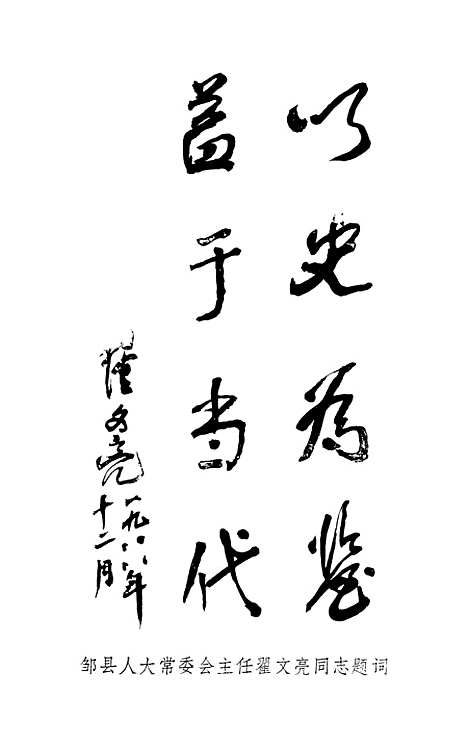 以史为鉴
益于当代
翟文亮
一九八八年
十二月
邹县人大常委会主任翟文亮同志题词